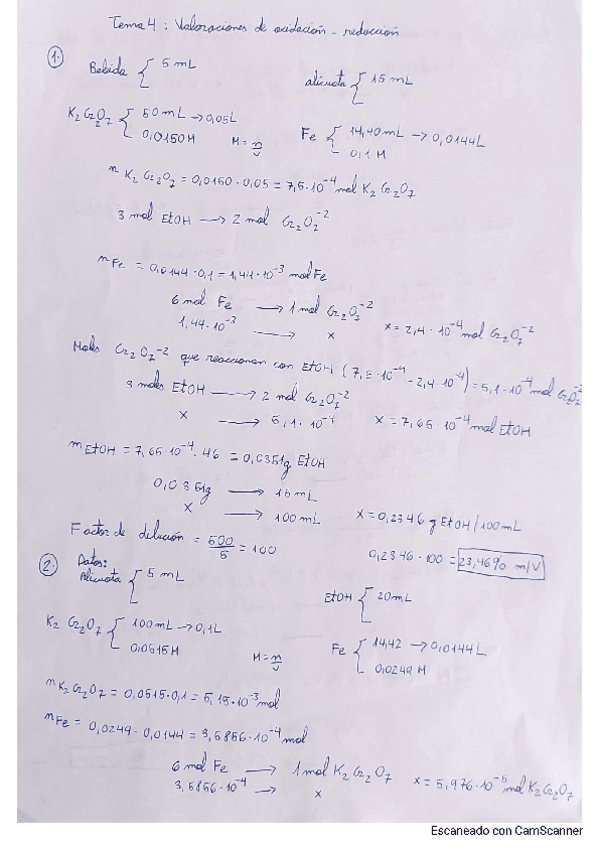 Tema 4: Valoraciones de oxidación - reducción
1. Bebida { 5 mL alícuota { 15 mL
K₂Cr₂O₇ { 50 mL → 0,05L Fe { 14,40 mL → 0,0144L
0,0150 M M = n/V 0,1 M
n K₂Cr₂O₇ = 0,0150 · 0,05 = 7,5·10⁻⁴ mol K₂Cr₂O₇
3 mol EtOH → 2 mol Cr₂O₇⁻²
nFe = 0,0144 · 0,1 = 1,44·10⁻³ mol Fe
6 mol Fe → 1 mol Cr₂O₇⁻²
1,44·10⁻³ → x x = 2,4·10⁻⁴ mol Cr₂O₇⁻²
Moles Cr₂O₇⁻² que reaccionan con EtOH (7,5·10⁻⁴ - 2,4·10⁻⁴) = 5,1·10⁻⁴ mol Cr₂O₇⁻²
3 moles EtOH → 2 mol Cr₂O₇⁻²
x → 5,1·10⁻⁴ x = 7,65·10⁻⁴ mol EtOH
mEtOH = 7,65·10⁻⁴ · 46 = 0,0351g EtOH
0,0351g → 15 mL
x → 100 mL x = 0,2346 g EtOH/100mL
Factor de dilución = 500/5 = 100 0,2346 · 100 = 23,46% m/V
2. Datos:
Alícuota { 5 mL EtOH { 20mL
K₂Cr₂O₇ { 100mL → 0,1L Fe { 14,42 → 0,0144L
0,0515M M = n/V 0,0249 M
nK₂Cr₂O₇ = 0,0515·0,1 = 5,15·10⁻³ mol
nFe = 0,0249 · 0,0144 = 3,5856·10⁻⁴ mol
6 mol Fe → 1 mol K₂Cr₂O₇ x = 5,976·10⁻⁵ mol K₂Cr₂O₇
3,5856·10⁻⁴ → x
Escaneado con CamScanner